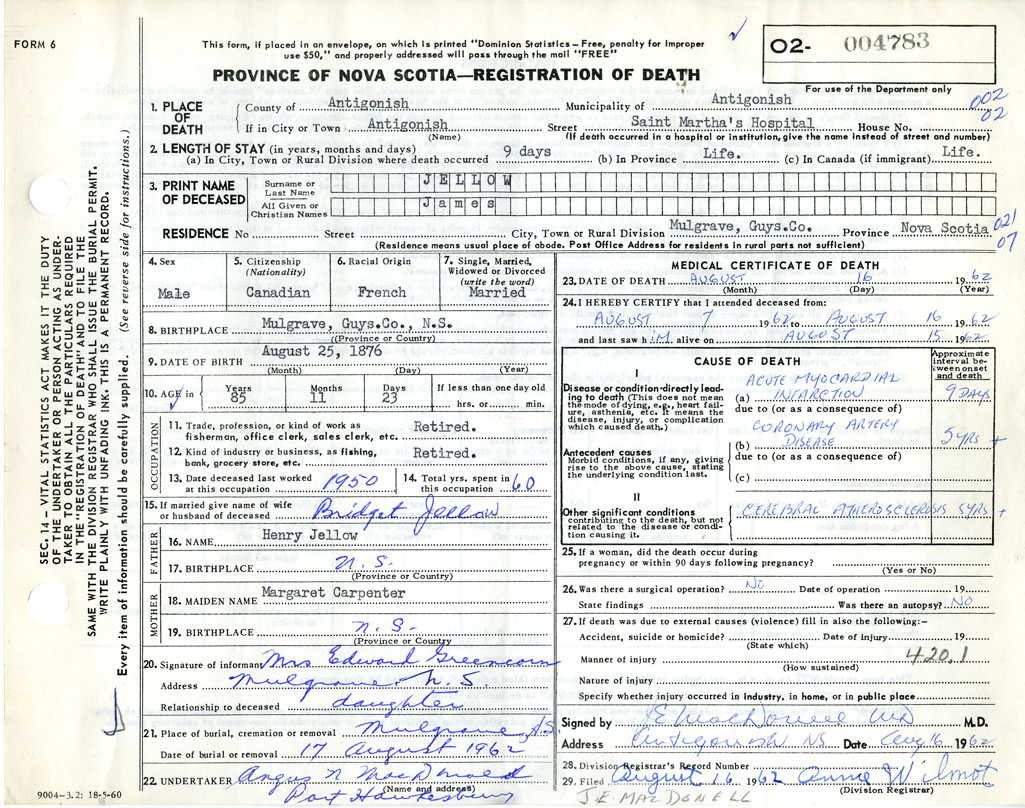 FORM 6
This form, if placed in an envelope, on which is printed "Dominion Statistics – Free, penalty for improper
use $50," and properly addressed will pass through the mail "FREE"
O2- 004783
For use of the Department only
PROVINCE OF NOVA SCOTIA—REGISTRATION OF DEATH
002
02
1. PLACE OF DEATH
County of Antigonish Municipality of Antigonish
If in City or Town Antigonish Street Saint Martha's Hospital House No.
(Name) (If death occurred in a hospital or institution, give the name instead of street and number)
2. LENGTH OF STAY (in years, months and days)
(a) In City, Town or Rural Division where death occurred 9 days (b) In Province Life. (c) In Canada (if immigrant) Life.
3. PRINT NAME OF DECEASED
Surname or Last Name JELLOW
All Given or Christian Names James
RESIDENCE No Street City, Town or Rural Division Mulgrave, Guys.Co. Province Nova Scotia
021
07
(Residence means usual place of abode. Post Office Address for residents in rural parts not sufficient)
SEC. 14 – VITAL STATISTICS ACT MAKES IT THE DUTY
OF THE UNDERTAKER OR PERSON ACTING AS UNDER-
TAKER TO OBTAIN ALL THE PARTICULARS REQUIRED
IN THE "REGISTRATION OF DEATH" AND TO FILE THE
SAME WITH THE DIVISION REGISTRAR WHO SHALL ISSUE THE BURIAL PERMIT.
WRITE PLAINLY WITH UNFADING INK. THIS IS A PERMANENT RECORD.
Every item of information should be carefully supplied. (See reverse side for instructions.)
4. Sex
Male
5. Citizenship
(Nationality)
Canadian
6. Racial Origin
French
7. Single, Married,
Widowed or Divorced
(write the word)
Married
8. BIRTHPLACE Mulgrave, Guys.Co., N.S.
((Province or Country)
9. DATE OF BIRTH August 25, 1876
(Month) (Day) (Year)
10. AGE in
Years 85 Months 11 Days 23
If less than one day old
hrs. or min.
OCCUPATION
11. Trade, profession, or kind of work as
fisherman, office clerk, sales clerk, etc. Retired.
12. Kind of industry or business, as fishing,
bank, grocery store, etc. Retired.
13. Date deceased last worked
at this occupation 1950
14. Total yrs. spent in
this occupation 60
15. If married give name of wife
or husband of deceased Bridget Jellow
FATHER
16. NAME Henry Jellow
17. BIRTHPLACE N.S.
(Province or Country)
MOTHER
18. MAIDEN NAME Margaret Carpenter
19. BIRTHPLACE N.S.
(Province or Country
20. Signature of informant Mrs Edward Greencorn
Address Mulgrave N.S
Relationship to deceased daughter
21. Place of burial, cremation or removal Mulgrave, N.S.
Date of burial or removal 17 August 1962
22. UNDERTAKER Angus N MacDonald
(Name and address)
Port Hawkesbury
9004–3.2: 18-5-60
MEDICAL CERTIFICATE OF DEATH
23. DATE OF DEATH AUGUST 16 1962
(Month) (Day) (Year)
24. I HEREBY CERTIFY that I attended deceased from:
AUGUST 7 1962 to AUGUST 16 1962
and last saw him alive on AUGUST 15 1962
CAUSE OF DEATH
Approximate
interval be-
tween onset
and death
I
Disease or condition directly lead-
ing to death (This does not mean
the mode of dying, e.g., heart fail-
ure, asthenia, etc. It means the
disease, injury, or complication
which caused death.)
(a) ACUTE MYOCARDIAL
INFARCTION 9 DAYS
due to (or as a consequence of)
Antecedent causes
Morbid conditions, if any, giving
rise to the above cause, stating
the underlying condition last.
(b) CORONARY ARTERY
DISEASE 5 YRS +
due to (or as a consequence of)
(c)
II
Other significant conditions
contributing to the death, but not
related to the disease or condi-
tion causing it.
CEREBRAL ATHEROSCLEROSIS 5YRS +
25. If a woman, did the death occur during
pregnancy or within 90 days following pregnancy?
(Yes or No)
26. Was there a surgical operation? NO Date of operation 19
State findings Was there an autopsy? NO
27. If death was due to external causes (violence) fill in also the following:–
Accident, suicide or homicide? Date of injury 19
(State which)
Manner of injury 420.1
(How sustained)
Nature of injury
Specify whether injury occurred in industry, in home, or in public place
Signed by J E MacDonell MD M.D.
Address Antigonish NS Date Aug 16 1962
28. Division Registrar's Record Number
29. Filed August 16 1962 Annie Wilmot
(Division Registrar)
J.E. MACDONELL